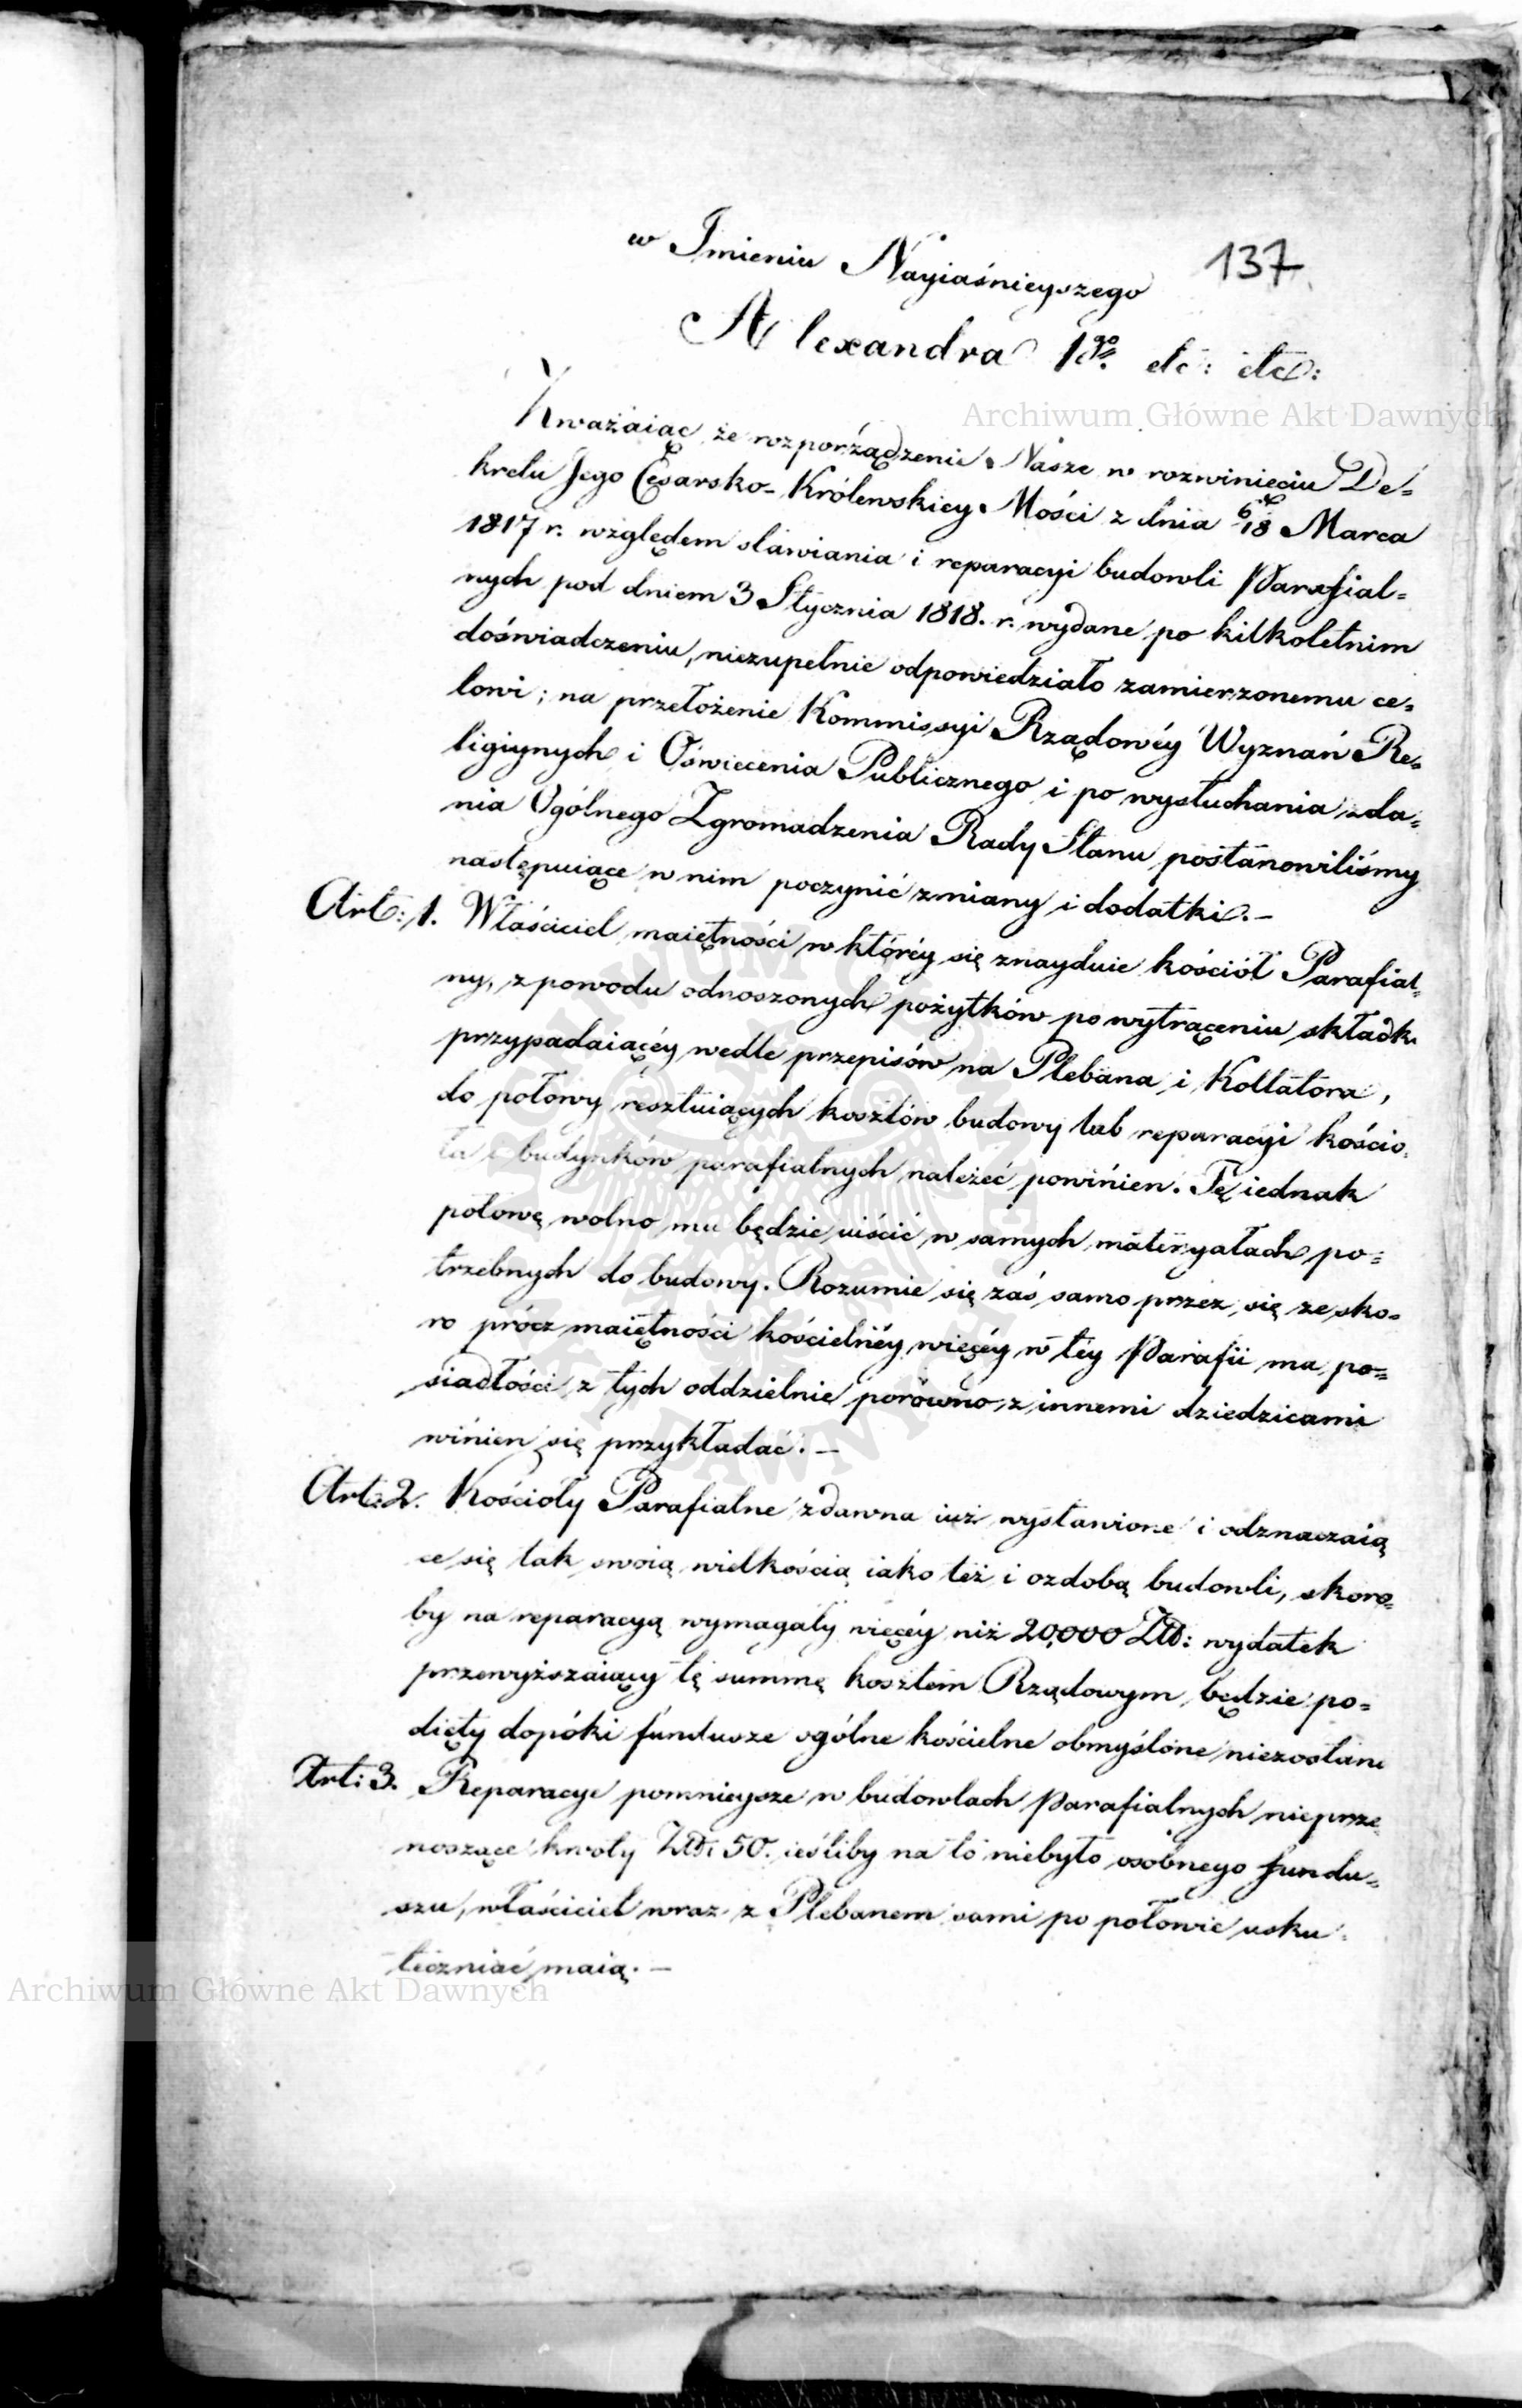 137
w Imieniu Nayiaśnieyszego
Alexandra 1go. etc: etc:
Zważaiąc że rozporządzenie Nasze w rozwinięciu De=
kretu Jego Cesarsko-Królewskiey Mości z dnia 6/18 Marca
1817 r. względem stawiania i reparacyi budowli Parafial=
nych pod dniem 3 Stycznia 1818. r. wydane po kilkoletnim
doświadczeniu, niezupełnie odpowiedziało zamierzonemu ce=
lowi; na przełożenie Kommissyi Rządowéy Wyznań Re=
ligiynych i Oświecenia Publicznego i po wysłuchania zda=
nia Ogólnego Zgromadzenia Rady Stanu postanowiliśmy
następuiące w nim poczynić zmiany i dodatki.—
Art: 1. Właściciel maiętności w któréy się znayduie kościół Parafial=
ny, z powodu odnoszonych pożytków po wytrąceniu składk
przypadaiącéy wedle przepisów na Plebana i Kollatora,
do połowy resztuiących kosztów budowy lub reparacyi kościo
ła i budynków parafialnych należeć powinien. Tę iednak
połowę wolno mu będzie uiścić w samych materyałach po=
trzebnych do budowy. Rozumie się zaś samo przez się że sko=
ro prócz maiętności kościelnéy więcéy w téy Parafii ma po=
siadłości z tych oddzielnie porówno z innemi dziedzicami
winien się przykładać.—
Art: 2. Kościoły Parafialne zdawna iuż wystawione i odznaczaią
ce się tak swoią wielkością iako też i ozdobą budowli, skoro=
by na reparacyą wymagały więcéy niż 20,000 Złł: wydatek
przewyższaiący tę summę kosztem Rządowym będzie po=
dięty dopóki fundusze ogólne kościelne obmyślone niezostaną
Art: 3. Reparacye pomnieysze w budowlach Parafialnych nieprze
noszące kwoty Złł: 50. ieśliby na to niebyło osobnego fundu=
szu, właściciel wraz z Plebanem sami po połowie usku=
teczniać maią.—
Archiwum Główne Akt Dawnych
Archiwum Główne Akt Dawnych